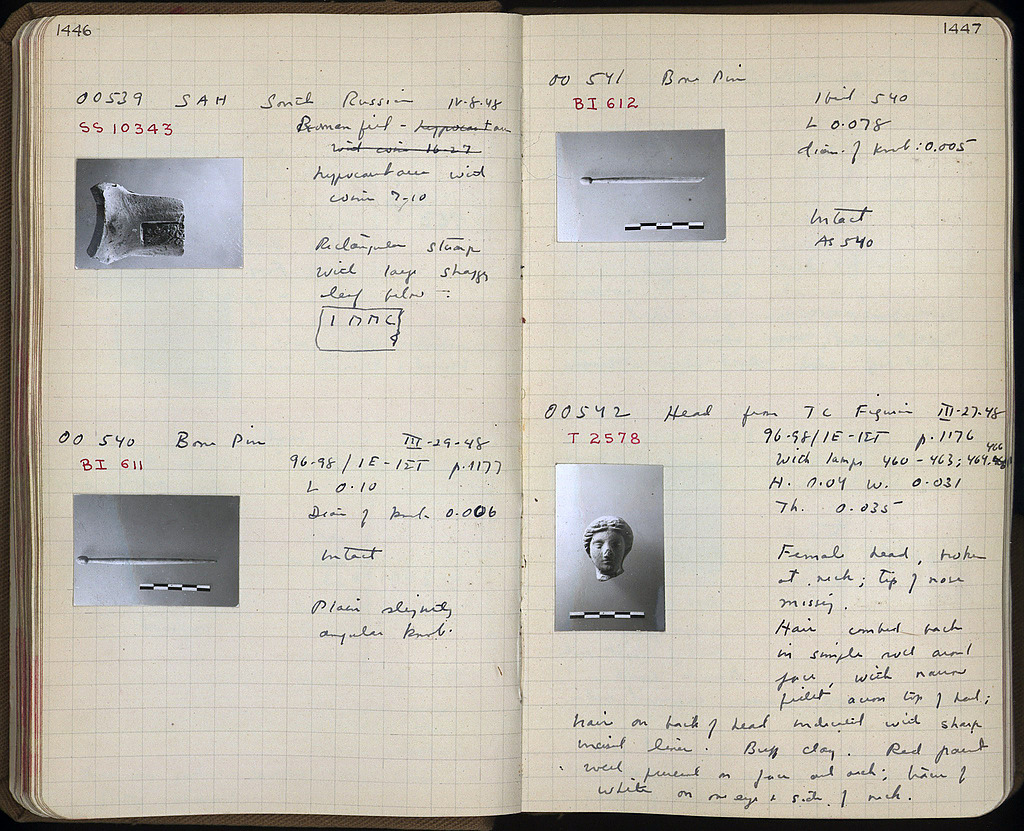 1446
OO 539 SAH South Russian IV-8-48
SS 10343
Roman fill - hypocaust area
with coin 16-27
hypocaust area with
coin 7-10
Rectangular stamp
with large shaggy
leaf below :
OO 540 Bone Pin III-29-48
BI 611
96-98/ΙΕ-ΙΣΤ p.1177
L 0.10
Diam of knob 0.006
Intact
Plain slightly
angular knob.
1447
OO 541 Bone Pin
BI 612
Ibid 540
L 0.078
diam. of knob: 0.005
Intact
As 540
OO 542 Head from TC Figurine III-27-48
T 2578
96-98/ΙΕ-ΙΣΤ p.1176
With lamps 460-463; 464, 466
H. 0.04 W. 0.031
Th. 0.035
Female head, broken
at neck; tip of nose
missing.
Hair combed back
in simple roll around
face, with narrow
fillet across top of head;
hair on back of head indicated with sharp
incised lines. Buff clay. Red paint
well preserved on face and neck; traces of
white on one eye & side of neck.